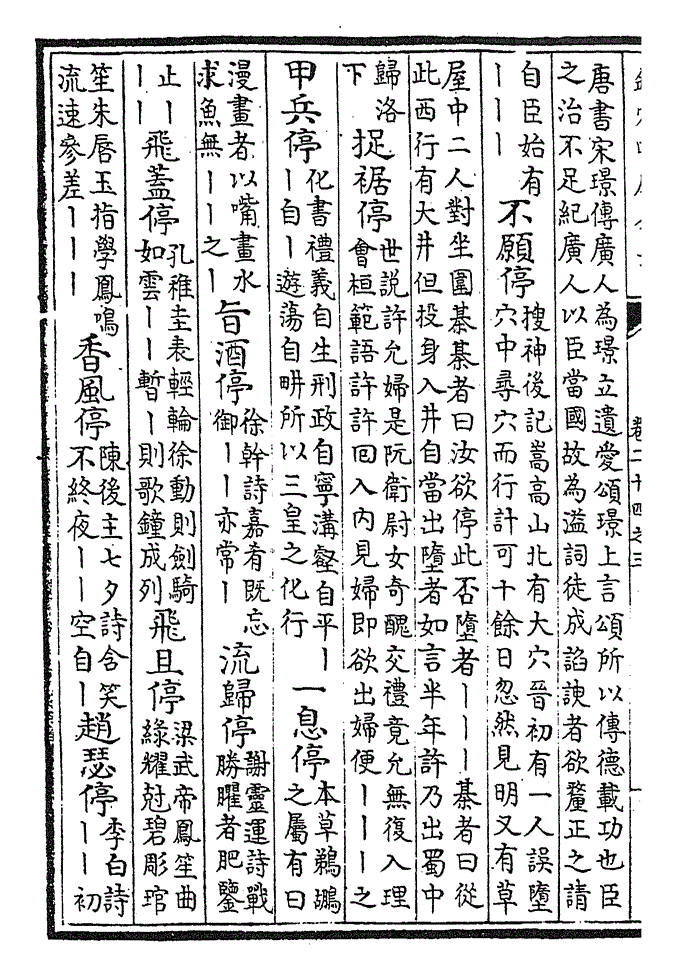 卷二十四之三
唐書宋璟傳廣人為璟立遺愛頌璟上言頌所以傳德載功也臣
之治不足紀廣人以臣當國故為溢詞徒成諂諛者欲釐正之請
自臣始有
丨丨丨
不願停
搜神後記嵩高山北有大穴晉初有一人誤墮
穴中尋穴而行計可十餘日忽然見明又有草
屋中二人對坐圍棊棊者曰汝欲停此否墮者丨丨丨棊者曰從
此西行有大井但投身入井自當出墮者如言半年許乃出蜀中
歸洛
下
捉裾停
世說許允婦是阮衛尉女奇醜交禮竟允無復入理
會桓範語許許回入內見婦即欲出婦便丨丨丨之
甲兵停
化書禮義自生刑政自寧溝壑自平丨
丨自丨遊蕩自畊所以三皇之化行
一息停
本草鵜鶘
之屬有曰
漫畫者以嘴畫水
求魚無丨丨之丨
旨酒停
徐幹詩嘉肴既忘
御丨丨亦常丨
流歸停
謝靈運詩戰
勝曜者肥鑒
止丨
丨丨
飛蓋停
孔稚圭表輕輪徐動則劍騎
如雲丨丨暫丨則歌鐘成列
飛且停
梁武帝鳳笙曲
綠耀尅碧彫琯
笙朱唇玉指學鳳鳴
流速參差丨丨丨
香風停
陳後主七夕詩含笑
不終夜丨丨空自丨
趙瑟停
李白詩
丨丨初